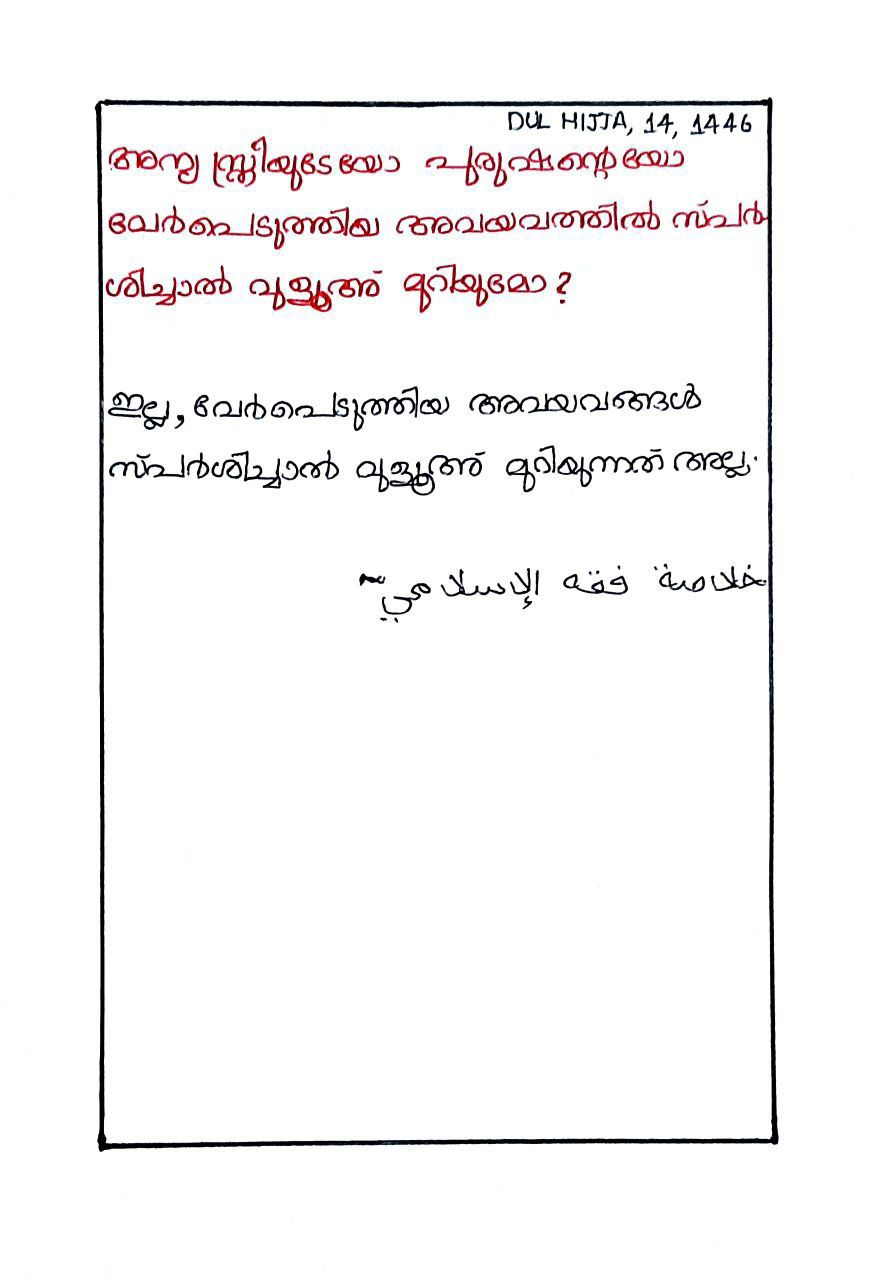 DUL HIJJA, 14, 1446
അന്യ സ്ത്രീയുടേയോ പുരുഷന്റെയോ
വേർപെടുത്തിയ അവയവത്തിൽ സ്പർ
ശിച്ചാൽ വുളൂഅ് മുറിയുമോ?
ഇല്ല, വേർപെടുത്തിയ അവയവങ്ങൾ
സ്പർശിച്ചാൽ വുളൂഅ് മുറിയുന്നത് അല്ല.
خلاصة فقه الإسلامي~